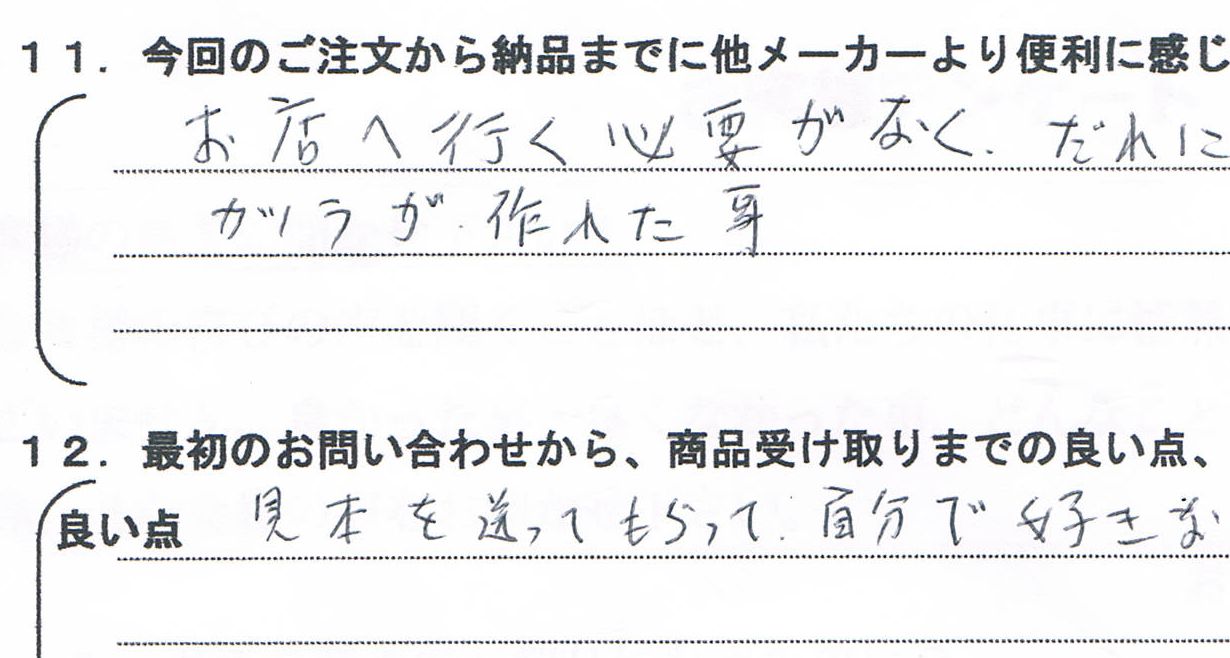 11．今回のご注文から納品までに他メーカーより便利に感じ
お店へ行く必要がなく、だれに
カツラが作れた事
12．最初のお問い合わせから、商品受け取りまでの良い点、
良い点 見本を送ってもらって、自分で好きな